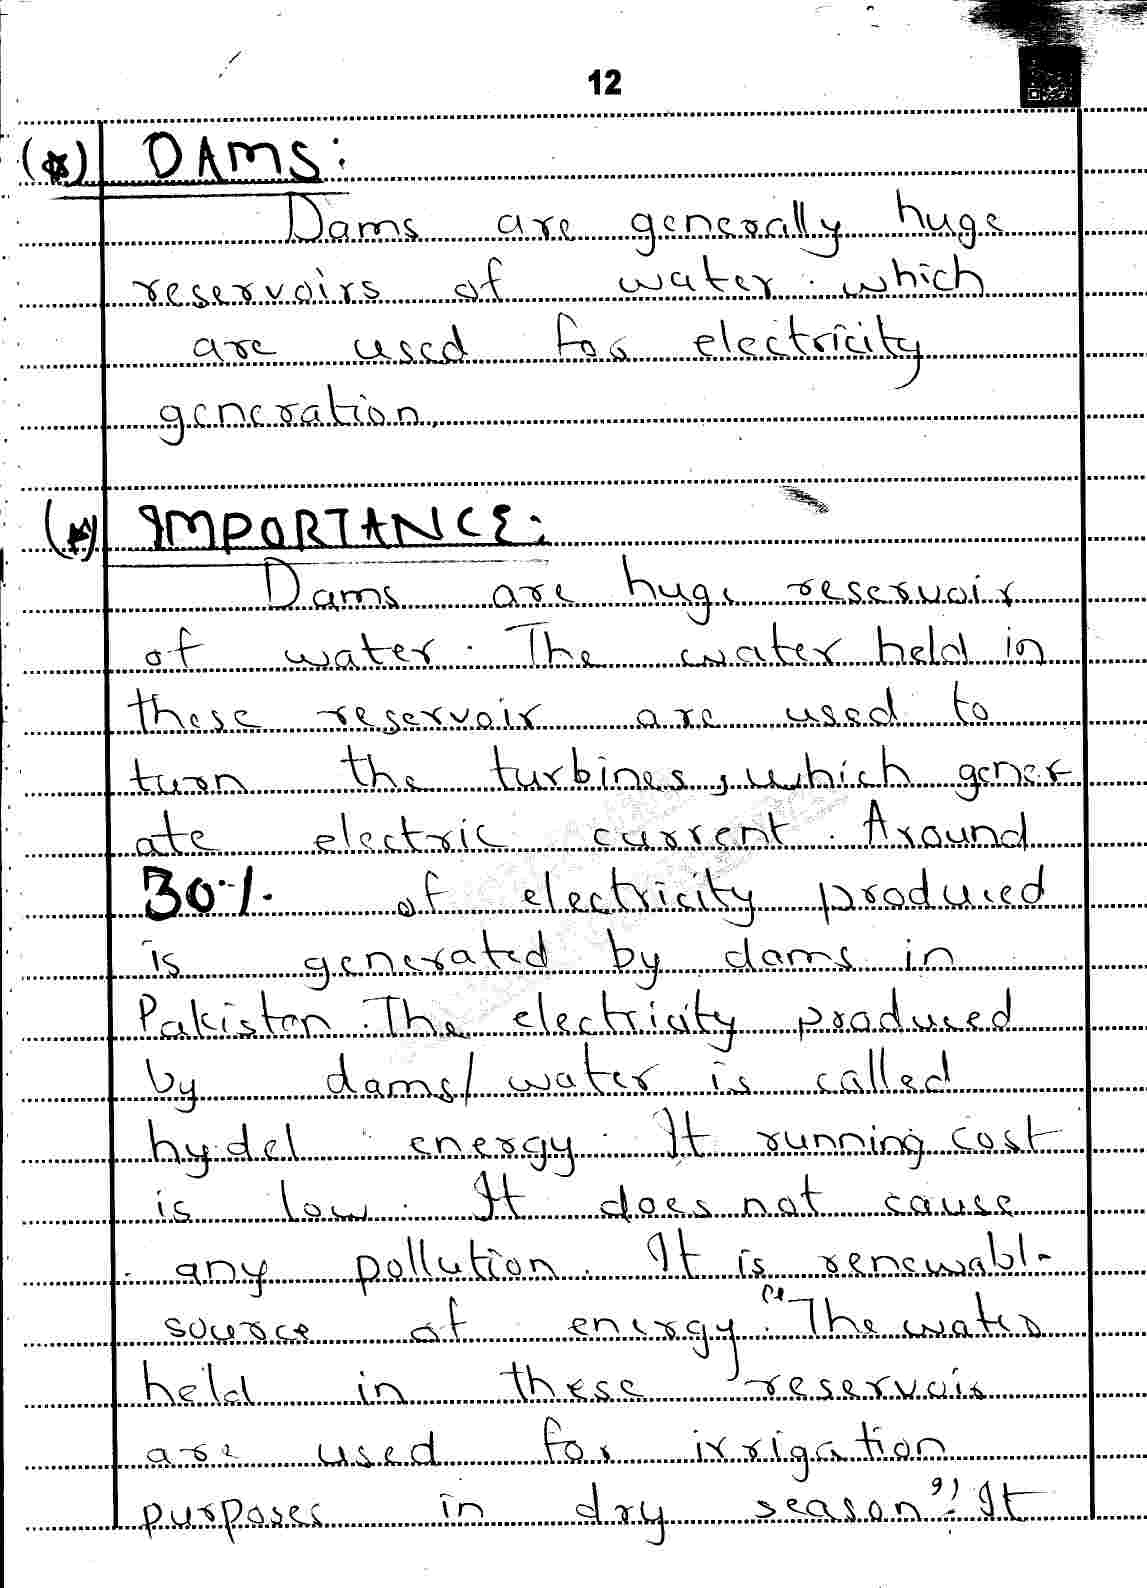 12
(*) DAMS:
Dams are generally huge
reservoirs of water which
are used for electricity
generation.
(*) IMPORTANCE:
Dams are huge reservoir
of water. The water held in
these reservoir are used to
turn the turbines, which gener
ate electric current. Around
30% of electricity produced
is generated by dams in
Pakistan. The electricity produced
by dams/water is called
hydel energy. It running cost
is low. It does not cause
any pollution. It is renewabl-
source of energy. "The water
held in these reservoir
are used for irrigation
purposes in dry season". It